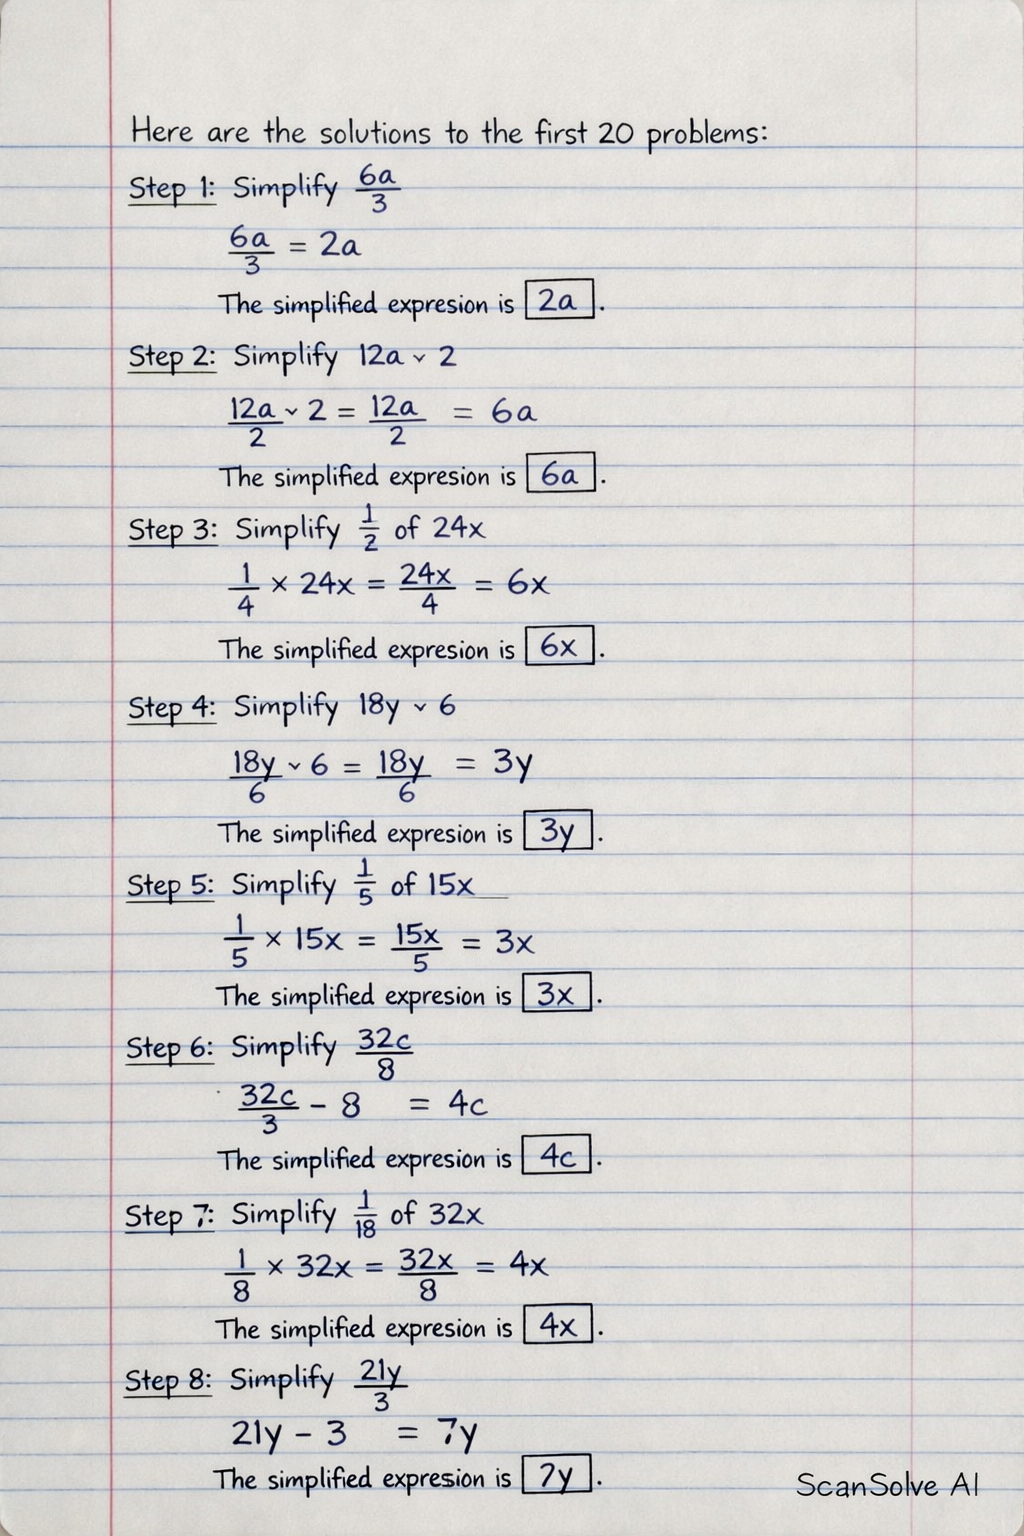 Here are the solutions to the first 20 problems:
Step 1: Simplify 6a/3
6a/3 = 2a
The simplified expresion is 2a.
Step 2: Simplify 12a ˇ 2
12a/2 ˇ 2 = 12a/2 = 6a
The simplified expresion is 6a.
Step 3: Simplify 1/2 of 24x
1/4 × 24x = 24x/4 = 6x
The simplified expresion is 6x.
Step 4: Simplify 18y ˇ 6
18y/6 ˇ 6 = 18y/6 = 3y
The simplified expresion is 3y.
Step 5: Simplify 1/5 of 15x
1/5 × 15x = 15x/5 = 3x
The simplified expresion is 3x.
Step 6: Simplify 32c/8
32c/3 - 8 = 4c
The simplified expresion is 4c.
Step 7: Simplify 1/18 of 32x
1/8 × 32x = 32x/8 = 4x
The simplified expresion is 4x.
Step 8: Simplify 21y/3
21y - 3 = 7y
The simplified expresion is 7y.
ScanSolve AI